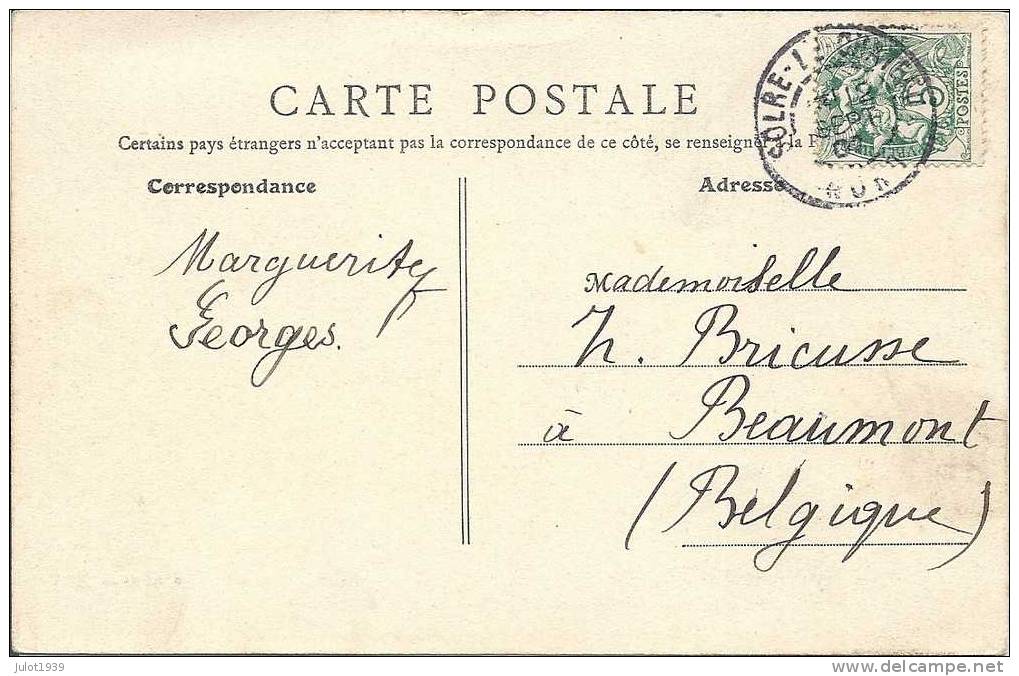 CARTE POSTALE
Certains pays étrangers n'acceptant pas la correspondance de ce côté, se renseigner à la P
Correspondance
Adresse
Marguerite
Georges.
Mademoiselle
H. Bricusse
à Beaumont
(Belgique)
SOLRE-LE-CHATEAU
NORD
5
POSTES
julot1939
delcampe.net